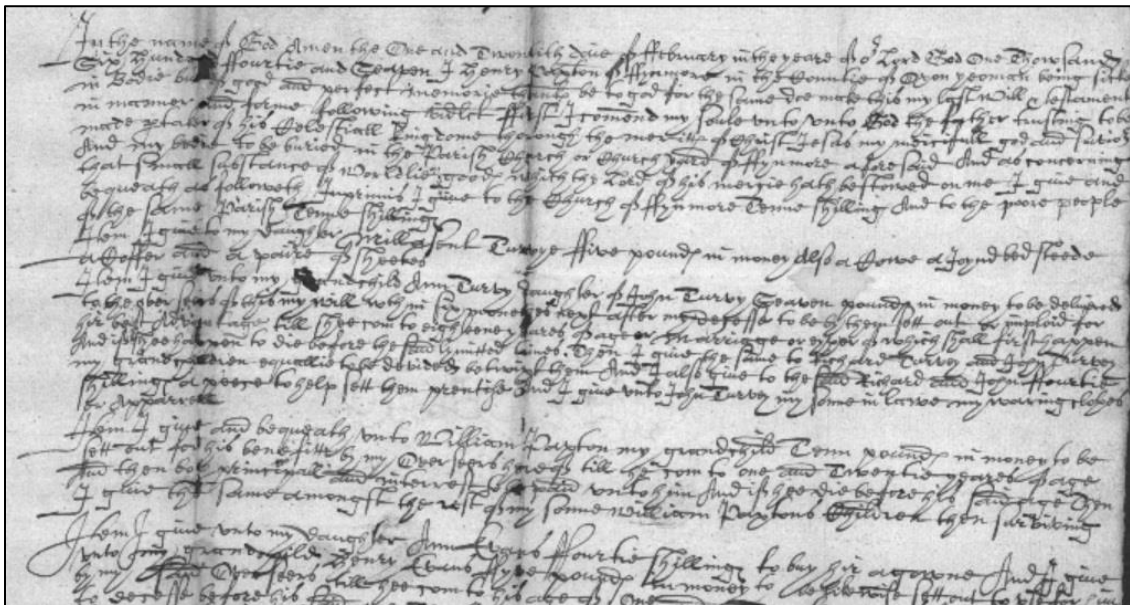 In the name of God Amen the One and Twentith daie of ffebruary in the yeare of or Lord God One Thowsand
Six Hundred ffourtie and Seaven I Henry Paxton of ffynmore in the Countie of Oxon yeoman being sicke
in Bodie but of good and perfect memorie thanks be to god for the same doe make this my last Will & testament
in manner and forme following vidlct ffirst I comend my soule vnto vnto God the father trusting to be
made ptaker of his Celestiall kingdome thorough the meritts of Christ Jesus my mercifull god and savior
And my bodie to be buried in the Parish Church or Church yard of ffynmore aforesaid And as concerning
that small substance of Worldlie goods which the Lord of his mercie hath bestowed on me I give and
bequeath as followeth Inprimis I give to the Church of ffynmore Tenne shillings And to the poore people
of the same Parish Tenne shillings
Item I give to my daughter Millesent Turvye ffive pounds in money Also a Cowe a Joynd bed steede
a Coffer and a paire of sheetes
Item I give vnto my grandchild Ann Turvy daughter of John Turvy Seaven pounds in money to be delivred
to the over seers of this my will wthin six monethes next after my decesse to be by them sett out or imploid for
hir best Advantage till shee com to eighteene yeares of age or Marrigge or ether of which shall first happen
And if shee happen to die before the said lymitted times Then I give the same to Richard Turvey and John Turvey
my grandchilderen equallie to be devided betwixt them And I also give to the said Richard and John ffourtie
shillings a peece to help sett them prentize And I give vnto John Turvey my sonne in lawe my waring clothes
or Apparrell
Item I give and bequeath vnto William Paxton my grandchild Tenn pounds in money to be
sett out for his benefitt by my Over seers hereof till he com to one and Twentie yeares of age
And then both principall and interrest to be paid vnto him And if hee die before his said age Then
I give the same amongst the rest of my sonne William Paxtons Children then surviving
Item I give vnto my daughter Ann Evans ffourtie shillings to buy hir a gowne And I give
vnto my grandchild Henry Evans ffyve pounds in money to be likewise sett out to
by my said Over seers till hee com to his age of One
to decesse before his said